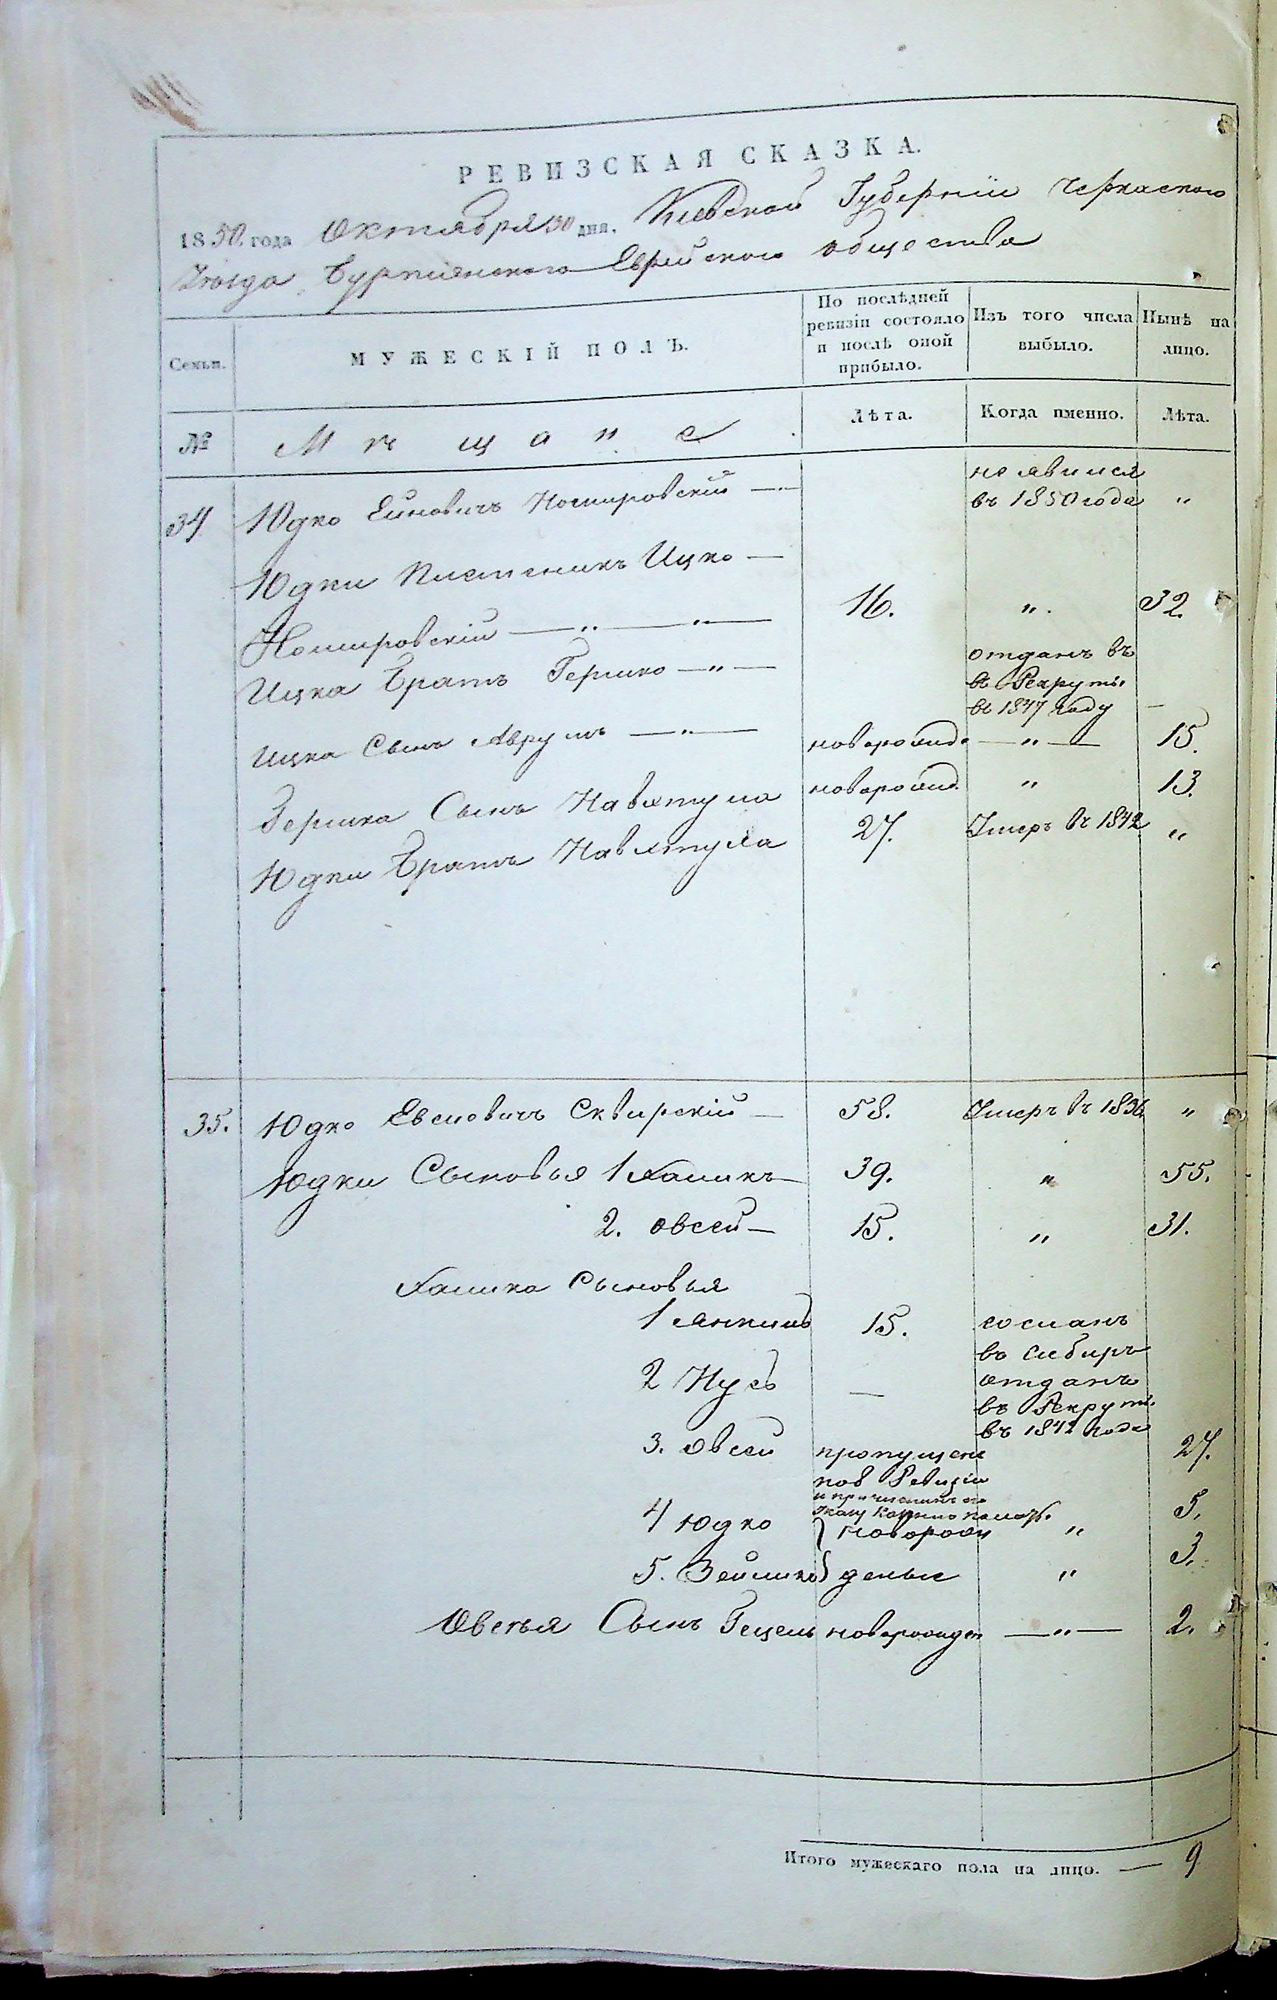 РЕВИЗСКАЯ СКАЗКА.
1850 года Октября 30 дня, Киевской Губерніи Черкаского
Уѣзда, Еврейского общества
Семьи.
МУЖЕСКІЙ ПОЛЪ.
По послѣдней ревизіи состояло и послѣ оной прибыло.
Изъ того числа выбыло.
Нынѣ на лицо.
№
Мѣщане
Лѣта.
Когда именно.
Лѣта.
34 Юдко — неявился
въ 1850 года "
Юдки Племеникъ Ицко —
— " — " — 16. " 32.
Ицка Братъ Гершко — " — отданъ въ
въ Рекруты
въ 1847 году —
Ицка Сынъ Аврумъ — " — новорожд. — " — 15.
Гершка Сынъ Навтула новорожд. " 13.
Юдки Братъ Навтула 27. Умеръ въ 1842 "
35. Юдко Евсеовичъ Сквирскій — 58. Умеръ въ 1836 "
Юдки Сыновья 1 Хаимъ — 39. " 55.
2. Овсей — 15. " 31.
Хаима Сыновья
1 Янкель 15. сосланъ
въ Сибирь
2 Нусъ — отданъ
въ Рекруты
въ 1842 года
3. Овсей пропущенъ 27.
Ревизіи
4 Юдко } новорож " 5.
5. Зейлико } деные " 3.
Овсѣя Сынъ Гецель новорожден — " — 2.
Итого мужескаго пола на лицо. — 9